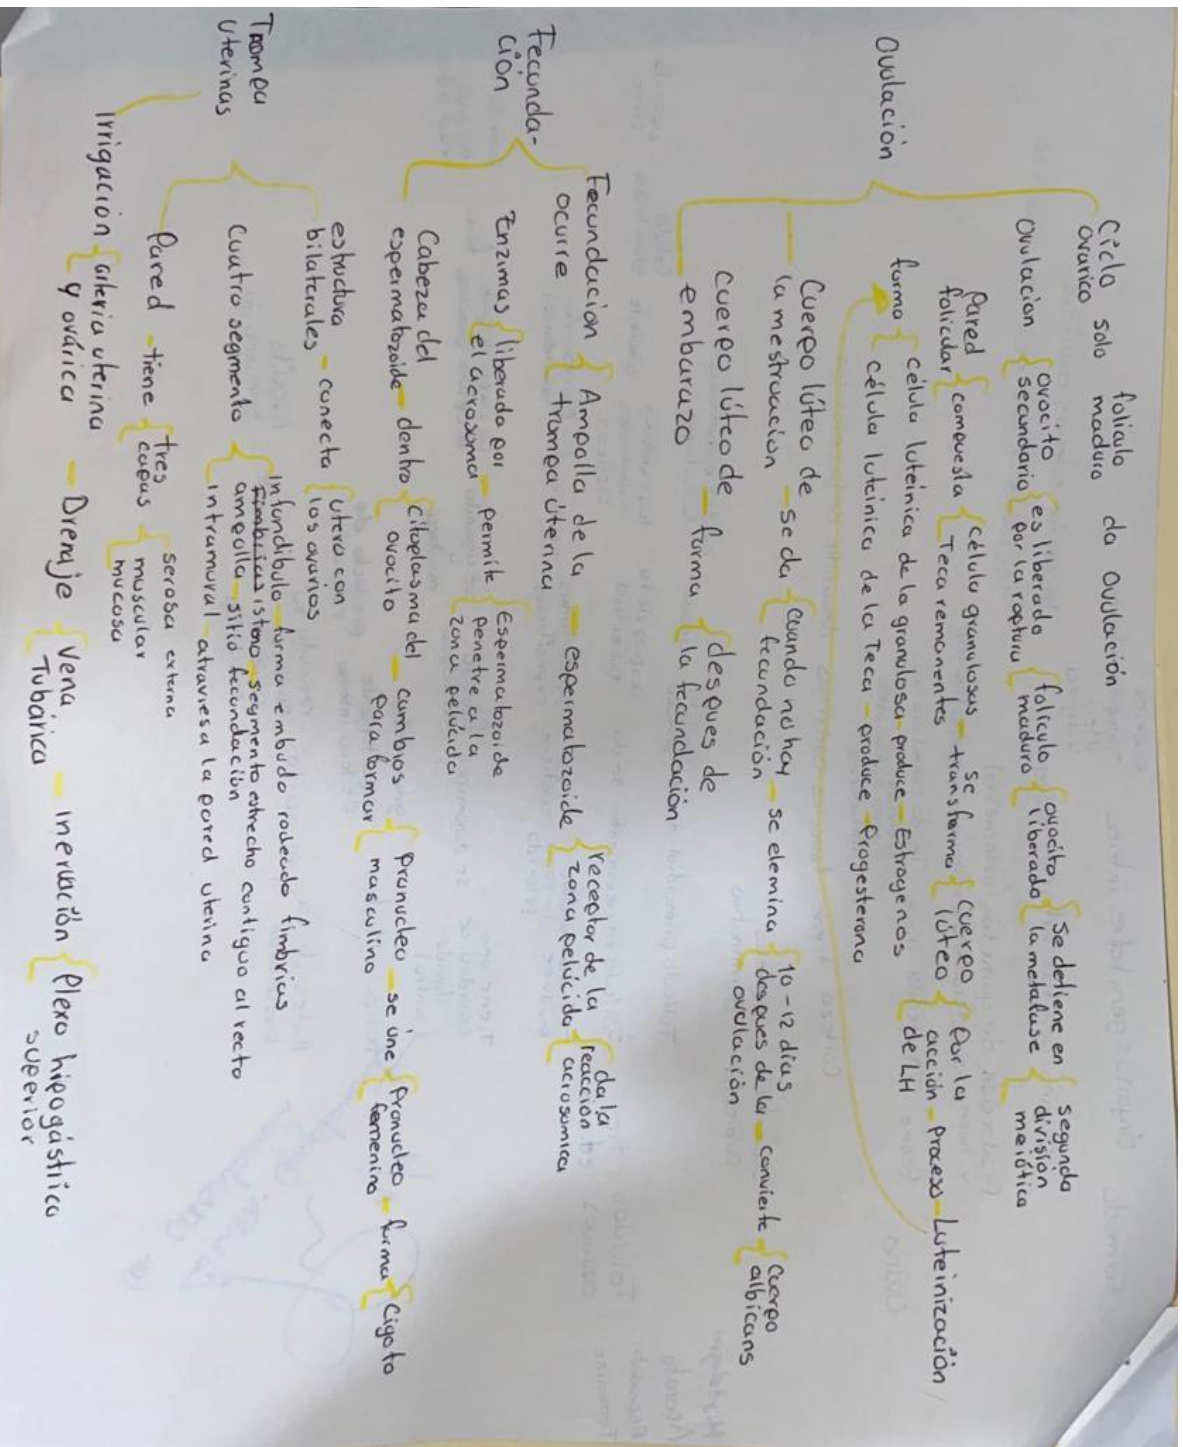 Ovulación
Ciclo ovarico solo foliculo maduro da Ovulación
Ovulacion ovocito secundario es liberado por la raptura folículo maduro ovocito liberado se detiene en la metafase segunda división meiótica
Pared folicular compuesta célula granulosas Teca remanentes se transforma cuerpo lúteo Por la acción de LH Proceso Luteinización
forma célula luteínica de la granulosa produce Estrogenos
célula luteinica de la Teca produce Progesterona
Cuerpo lúteo de la mestruacion se da cuando no hay fecundación se elemina 10-12 días despues de la ovulación convierte cuerpo albicans
cuerpo lúteo de embarazo forma despues de la fecundación
Fecunda-
ción
Fecundacion ocurre Ampolla de la trompa úterina espermatozoide receptor de la zona pelúcida da la reacción acrosomica
Enzimas liberada por el acrosoma permite Espermatozoide penetre a la zona pelúcida
Cabeza del espermatozoide dentro citoplasma del ovocito cambios para formar pronucleo masculino se úne Pronucleo femenino forma Cigoto
Trompa
Uterinas
estructura bilaterales conecta útero con los ovarios
Cuatro segmento Infundibulo forma embudo rodeado fimbrias
Fimbrias istmo segmento estrecho contiguo al recto
ampolla sitio fecundación
intramural atraviesa la pared uterina
Pared tiene tres capas serosa externa
muscular
mucosa
Irrigacion arteria uterina y ovárica Drenaje Vena Tubárica inervación Plexo hipogástrico superior